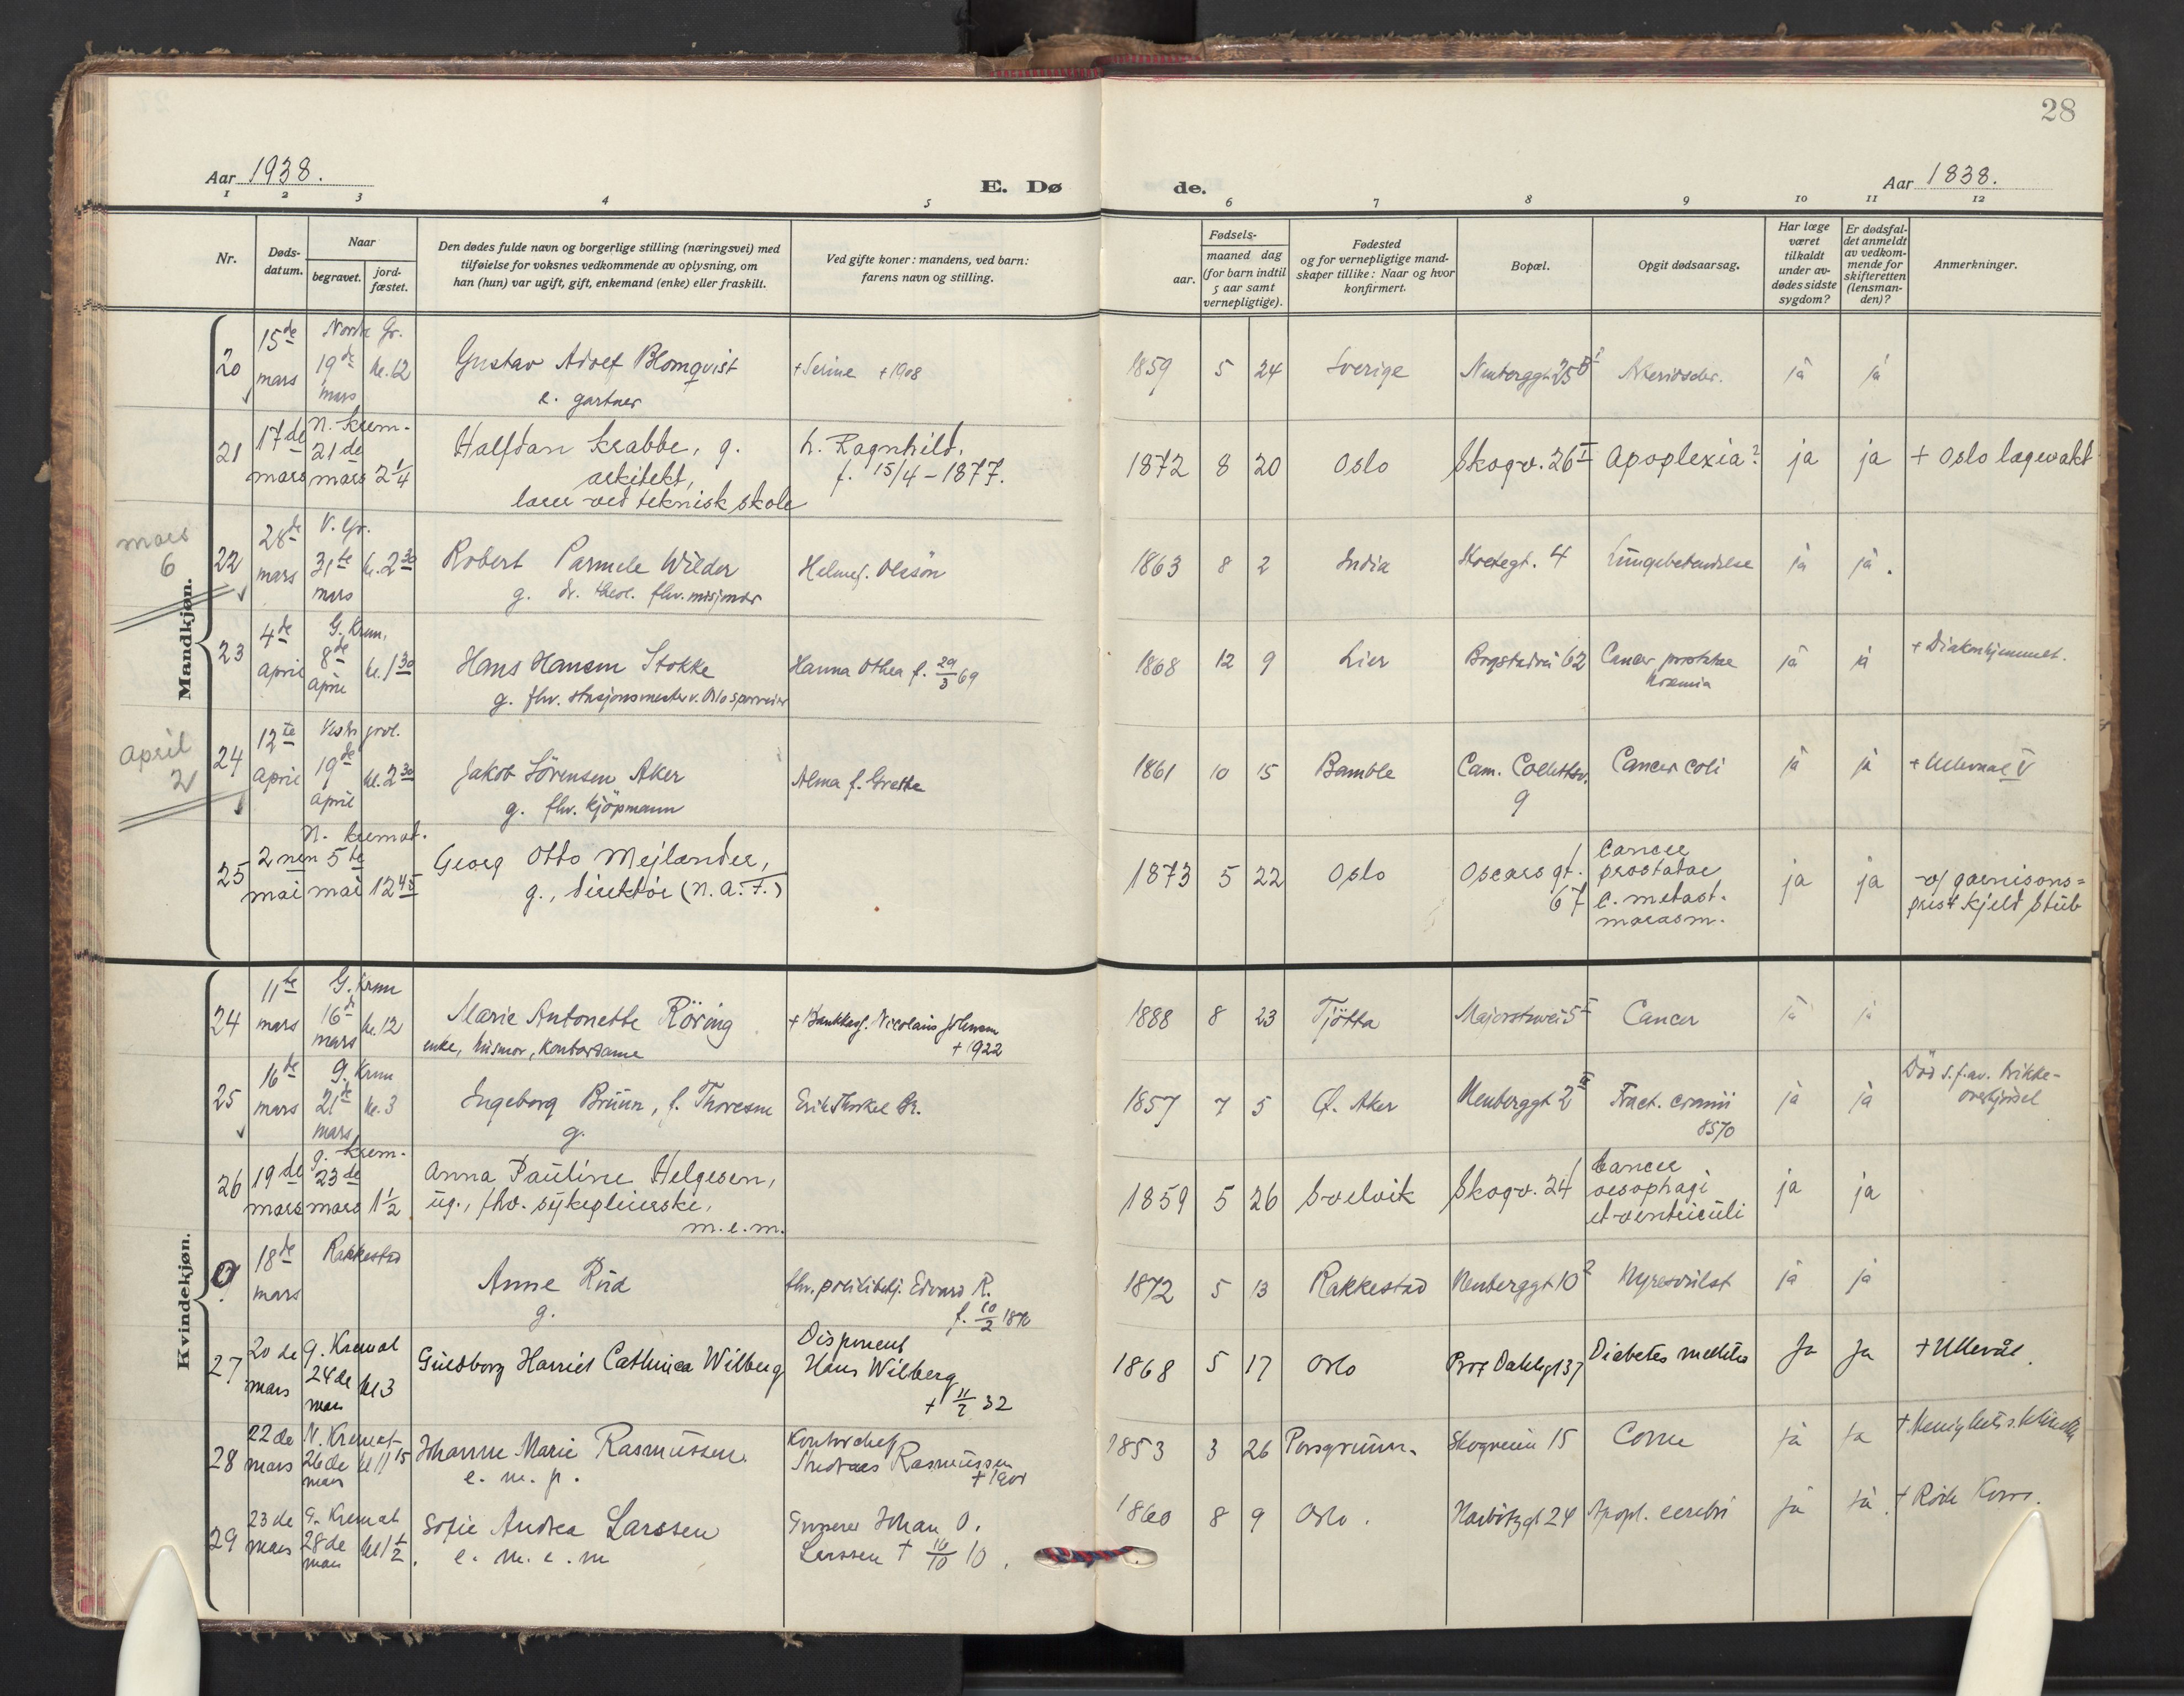 28
Aar 1938.
E. Dø
de.
Aar 1838.
1 2 3 4 5 6 7 8 9 10 11 12
Nr.
Døds-
datum.
Naar
begravet.
jord-
fæstet.
Den dødes fulde navn og borgerlige stilling (næringsvei) med
tilføielse for voksnes vedkommende av oplysning, om
han (hun) var ugift, gift, enkemand (enke) eller fraskilt.
Ved gifte koner: mandens, ved barn:
farens navn og stilling.
Fødsels-
aar.
maaned dag
(for barn indtil
5 aar samt
vernepligtige).
Fødested
og for vernepligtige mand-
skaper tillike: Naar og hvor
konfirmert.
Bopæl.
Opgit dødsaarsag.
Har læge
været
tilkaldt
under av-
dødes sidste
sygdom?
Er dødsfal-
det anmeldt
av vedkom-
mende for
skifteretten
(lensman-
den)?
Anmerkninger.
Mandkjøn.
20 15de mars Nordre Gr. 19de mars kl. 12
Gustav Adolf Blomqvist
e. gartner
+ Serine + 1908
1859 5 24 Sverige ja ja
21 17de mars N. Krem. 21de mars 2 1/4
Halfdan Krabbe, g.
arkitekt,
lærer ved teknisk skole
h. Ragnhild,
f. 15/4 - 1877.
1872 8 20 Oslo Skogv. 26 I Apoplexia? ja ja + Oslo lægevakt
mars
6
22 28de mars V. Gr. 31te mars kl. 2 30
Robert Parmele Wilder
g. dr. theol. fhv. misjonær
Helene f. Olsson
1863 8 2 India 4 Lungebetendelse ja ja.
23 4de april G. Krem. 8de april kl. 1 30
Hans Hansen Stokke
g. fhv. stasjonsmester v. Oslo sporveier
Hanna Othea f. 29/3 69
1868 12 9 Lier Bogstadvei 62 Cancer prostatae
ja ja + Diakonhjemmet.
april
2
24 12te april Vestre grvl. 19de april kl. 2 30
Jakob Sørensen Aker
g. fhv. kjöpmann
Alma f.
1861 10 15 Bamble Cam. Collettsv.
9
Cancer coli ja ja + Ullevaal V
25 2nen mai N. Kremat. 5te mai 12 45
Georg Otto Mejlænder,
g., direktör (N.A.F.)
1873 5 22 Oslo Oscarsgt.
67
Cancer
prostatae
c. metast.
marasm.
ja ja
v/ garnisons=
prest Kjeld Stub
Kvindekjøn.
24 11te mars G. Krem 16de mars kl. 12
Marie Antonette Röring
enke, husmor, kontordame
+ Nicolaus Johnsen
+ 1922
1888 8 23 Tjötta Majorstuvei 5 Cancer ja ja
25 16de mars G. Krem 21de mars kl. 3
Ingeborg Bruun, f. Thoresen
g.
Erik Thorkel Br.
1857 7 5 Ø. Aker Neuberggt 2 Fract. cranii
8570
ja ja
Död s.f.av. trikke-
overkjörsel
26 19de mars G. Krem. 23de mars 1 1/2
Anna Pauline Helgesen,
ug., fhv. sykepleierske,
m.e.m.
1859 5 26 Svelvik Skogv. 24 Cancer
oesophagi
et ventriculi
ja ja
0 18de mars Rakkestad
Anne Rud
g.
fhv. politibetj. Edvard R.
f. 10/2 1870
1872 5 13 Rakkestad Neuberggt 10 2 Nyresvulst ja ja
27 20de mars G. Kremat 24de mars kl 3
Guldborg Harriet Cathinca Wilberg
Disponent
Hans Wilberg
+ 11/2 32
1868 5 17 Oslo Prof Dahlsgt 37 Diabetes mellitus Ja Ja + Ullevål.
28 22de mars N. Kremat 26de mars kl 11 15
Johanne Marie Rasmussen
e. m. p.
Kontorchef
Andreas Rasmussen
+ 1901
1853 3 26 Porsgrunn. Skogveien 15 ja Ja
29 23de mars G. Kremat 28de mars kl 1 1/2.
Sofie Andrea Larssen
e. m. e. m
Johan O.
Larssen + 10/10 10.
1860 8 9 Oslo. Harbitzgt 24 Apopl. cerebri ja ja. + Röde Kors.